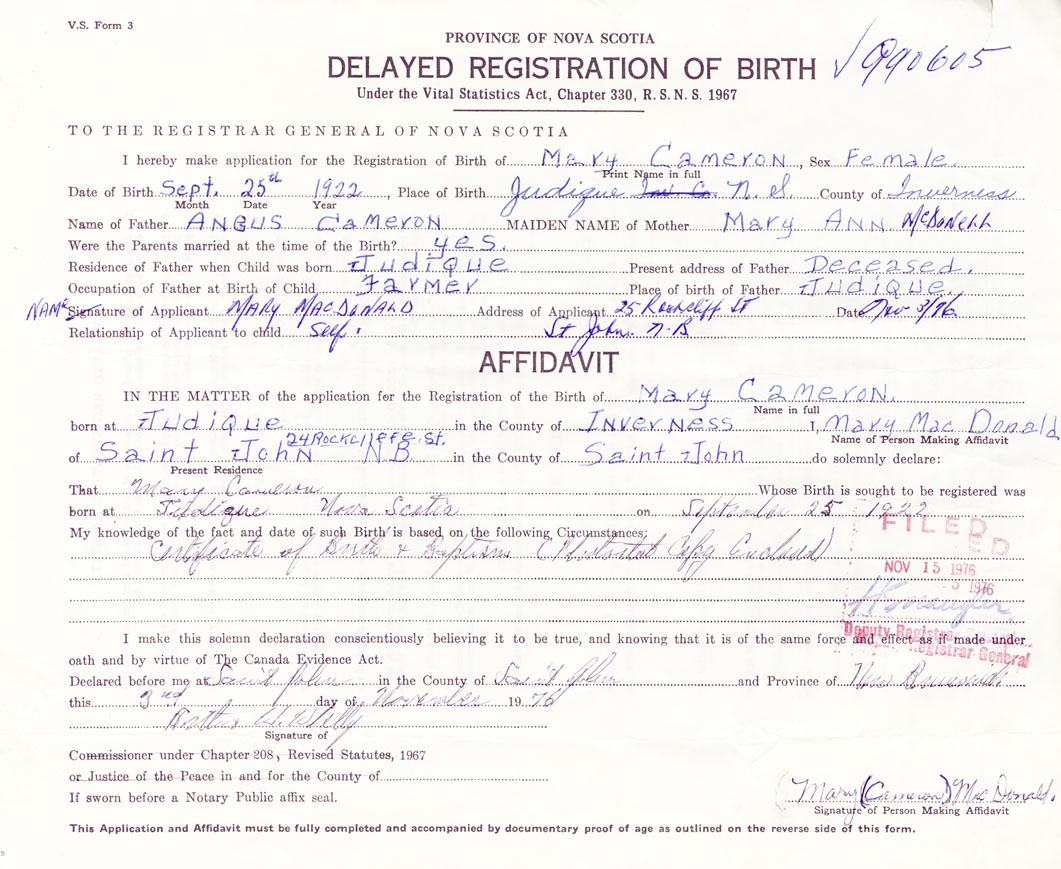 V.S. Form 3
PROVINCE OF NOVA SCOTIA
DELAYED REGISTRATION OF BIRTH √ 990605
Under the Vital Statistics Act, Chapter 330, R.S.N.S. 1967
TO THE REGISTRAR GENERAL OF NOVA SCOTIA
I hereby make application for the Registration of Birth of Mary Cameron, Sex Female.
Print Name in full
Date of Birth Sept. 25th 1922, Place of Birth Judique Inv Co. N.S. County of Inverness
Month Date Year
Name of Father ANGUS Cameron MAIDEN NAME of Mother Mary ANN McDonell
Were the Parents married at the time of the Birth? yes.
Residence of Father when Child was born Judique Present address of Father Deceased.
Occupation of Father at Birth of Child Farmer Place of birth of Father Judique.
NAME Signature of Applicant MARY MACDONALD Address of Applicant 25 Rockcliff St Date Nov 3/76
Relationship of Applicant to child Self. St John. N-B
AFFIDAVIT
IN THE MATTER of the application for the Registration of the Birth of Mary Cameron.
Name in full
born at Judique in the County of Inverness I, Mary Mac Donald
Name of Person Making Affidavit
24 Rockcliffe St.
of Saint John NB in the County of Saint John do solemnly declare:
Present Residence
That Mary Cameron Whose Birth is sought to be registered was
born at Judique Nova Scotia on September 25 1922
My knowledge of the fact and date of such Birth is based on the following Circumstances;
Certificate of Birth & Baptism (Photostat Copy Enclosed)
FILED
ED
NOV 15 1976
3 1976
Deputy Registrar General
Registrar General
I make this solemn declaration conscientiously believing it to be true, and knowing that it is of the same force and effect as if made under
oath and by virtue of The Canada Evidence Act.
Declared before me at Saint John in the County of Saint John and Province of New Brunswick
this 3rd day of November 1976
Signature of
Commissioner under Chapter 208, Revised Statutes, 1967
or Justice of the Peace in and for the County of
If sworn before a Notary Public affix seal.
Mary (Cameron) Mac Donald.
Signature of Person Making Affidavit
This Application and Affidavit must be fully completed and accompanied by documentary proof of age as outlined on the reverse side of this form.